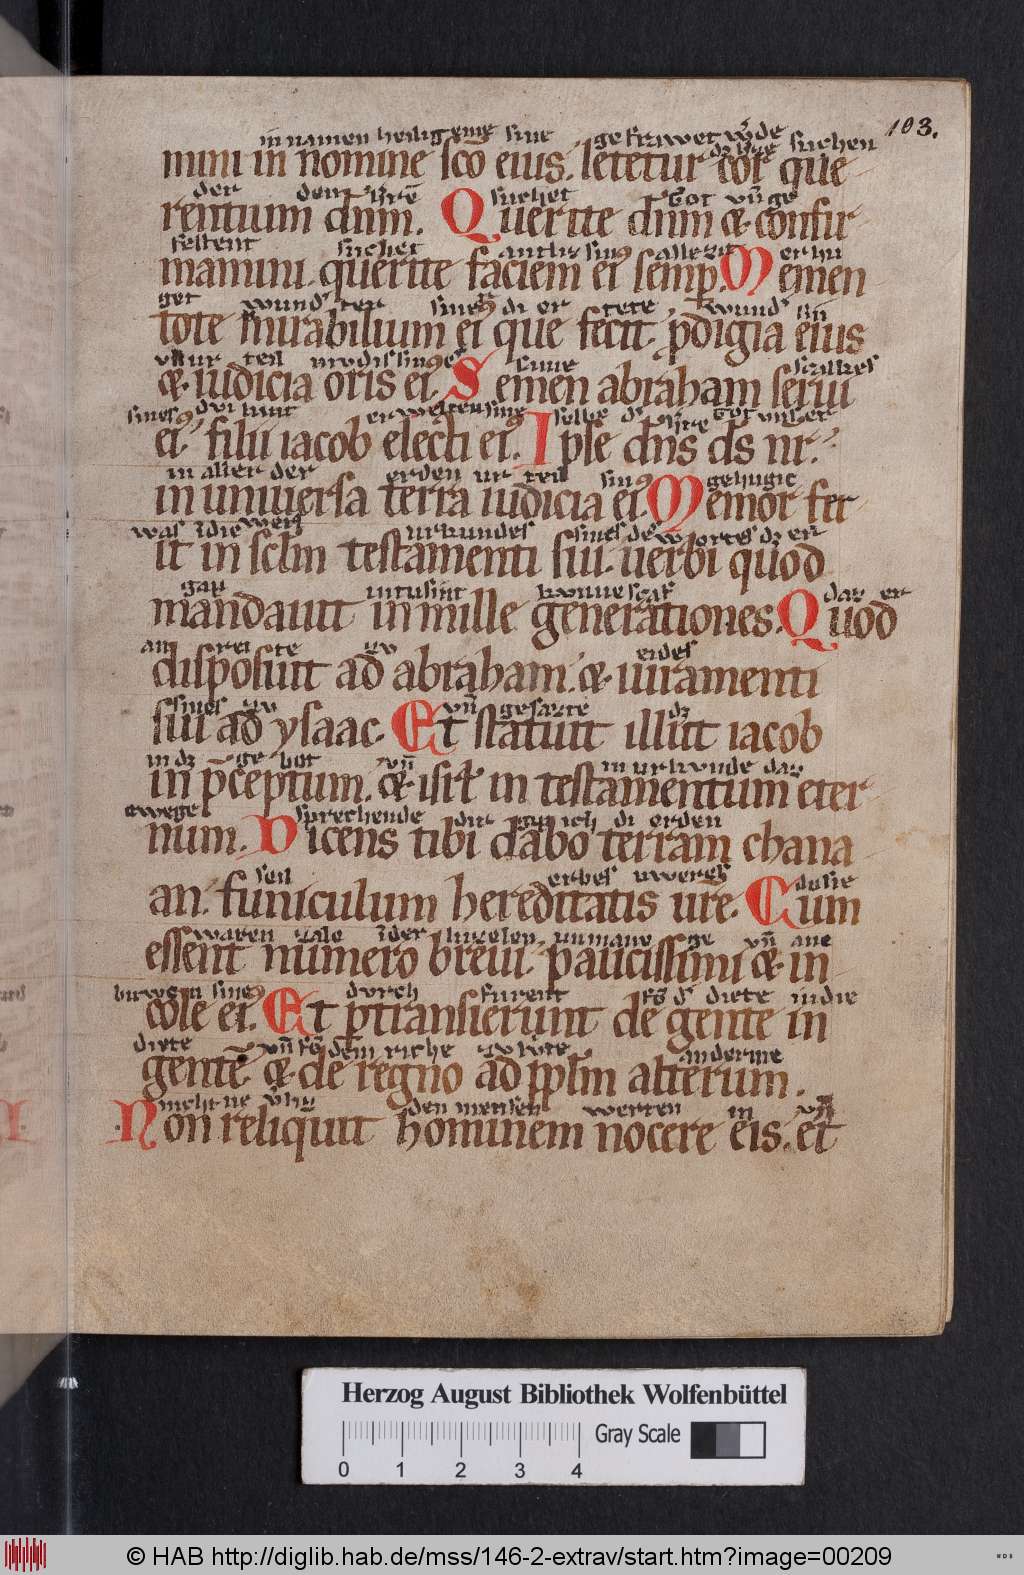 103.
in namen heilig eme sine gefrawet w̄de dz h̾ze suchen
mini in nomine sc̄o eius. letetur cor que
der den h̾rē suchet Got vn̄ ge
rentium dn̄m. Querite dn̄m & confir
festent suchet antliz sin⁹ alle zit er hu
mamini. querite faciem ei⁹ semp̱. Memen
get wund̾ ter sines di er tete wund̾ sin
tote mirabilium ei⁹ que fecit. ꝓdigia eius
vn̄ ur teil mvdis sines same scalkes
& iudicia oris ei⁹. Semen abraham serui
sines dvi kint er welten sine selbe d̾ h̾re Got vnser
ei⁹ filii iacob electi ei⁹. Ipse dn̄s ds̄ nr̄.
in aller der erden ur teil sin⁹ gehugic
in uniuersa terra iudicia ei⁹. Memor fer
was ī die werlt urkundes sines des wortes dz er
it in sc̄lm testamenti sui. uerbi quod
gap in tusint kunnescaf daz er
mandauit in mille generationes. Quod
an rei te zv eides
disposuit ad abraham. & iuramenti
sines zv vn̄ gesazte dz
sui ad ysaac. Et statuit illut iacob
in dz ge bot vn̄ in urkvnde daz
in p̄ceptum. & isrl̄ in testamentum eter
ewege sprechende dir gip ich di erden
num. Dicens tibi dabo terram chana
seil erbes uweres do sie
an. funiculum hereditatis ur̄e. Cum
waren zale ī der kurzelen unmane ge vn̄ ane
essent numero breui. paucissimi & in
buwen sines dvrch furent fō d̾ diete in die
cole ei⁹. Et ꝑtransierunt de gente in
diete vn̄ fō dem riche zv lv̄te anderme
gentē. & de regno ad pp̄lm alterum.
nicht ne v̾liz den mensen werren in vn̄
Non reliquit hominem nocere eis. et
Herzog August Bibliothek Wolfenbüttel
Gray Scale
0 1 2 3 4
© HAB http://diglib.hab.de/mss/146-2-extrav/start.htm?image=00209